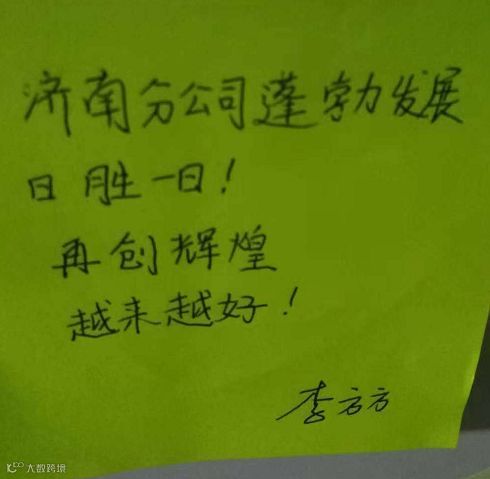 济南分公司蓬勃发展
日胜一日！
再创辉煌
越来越好！
李方方
大数跨境